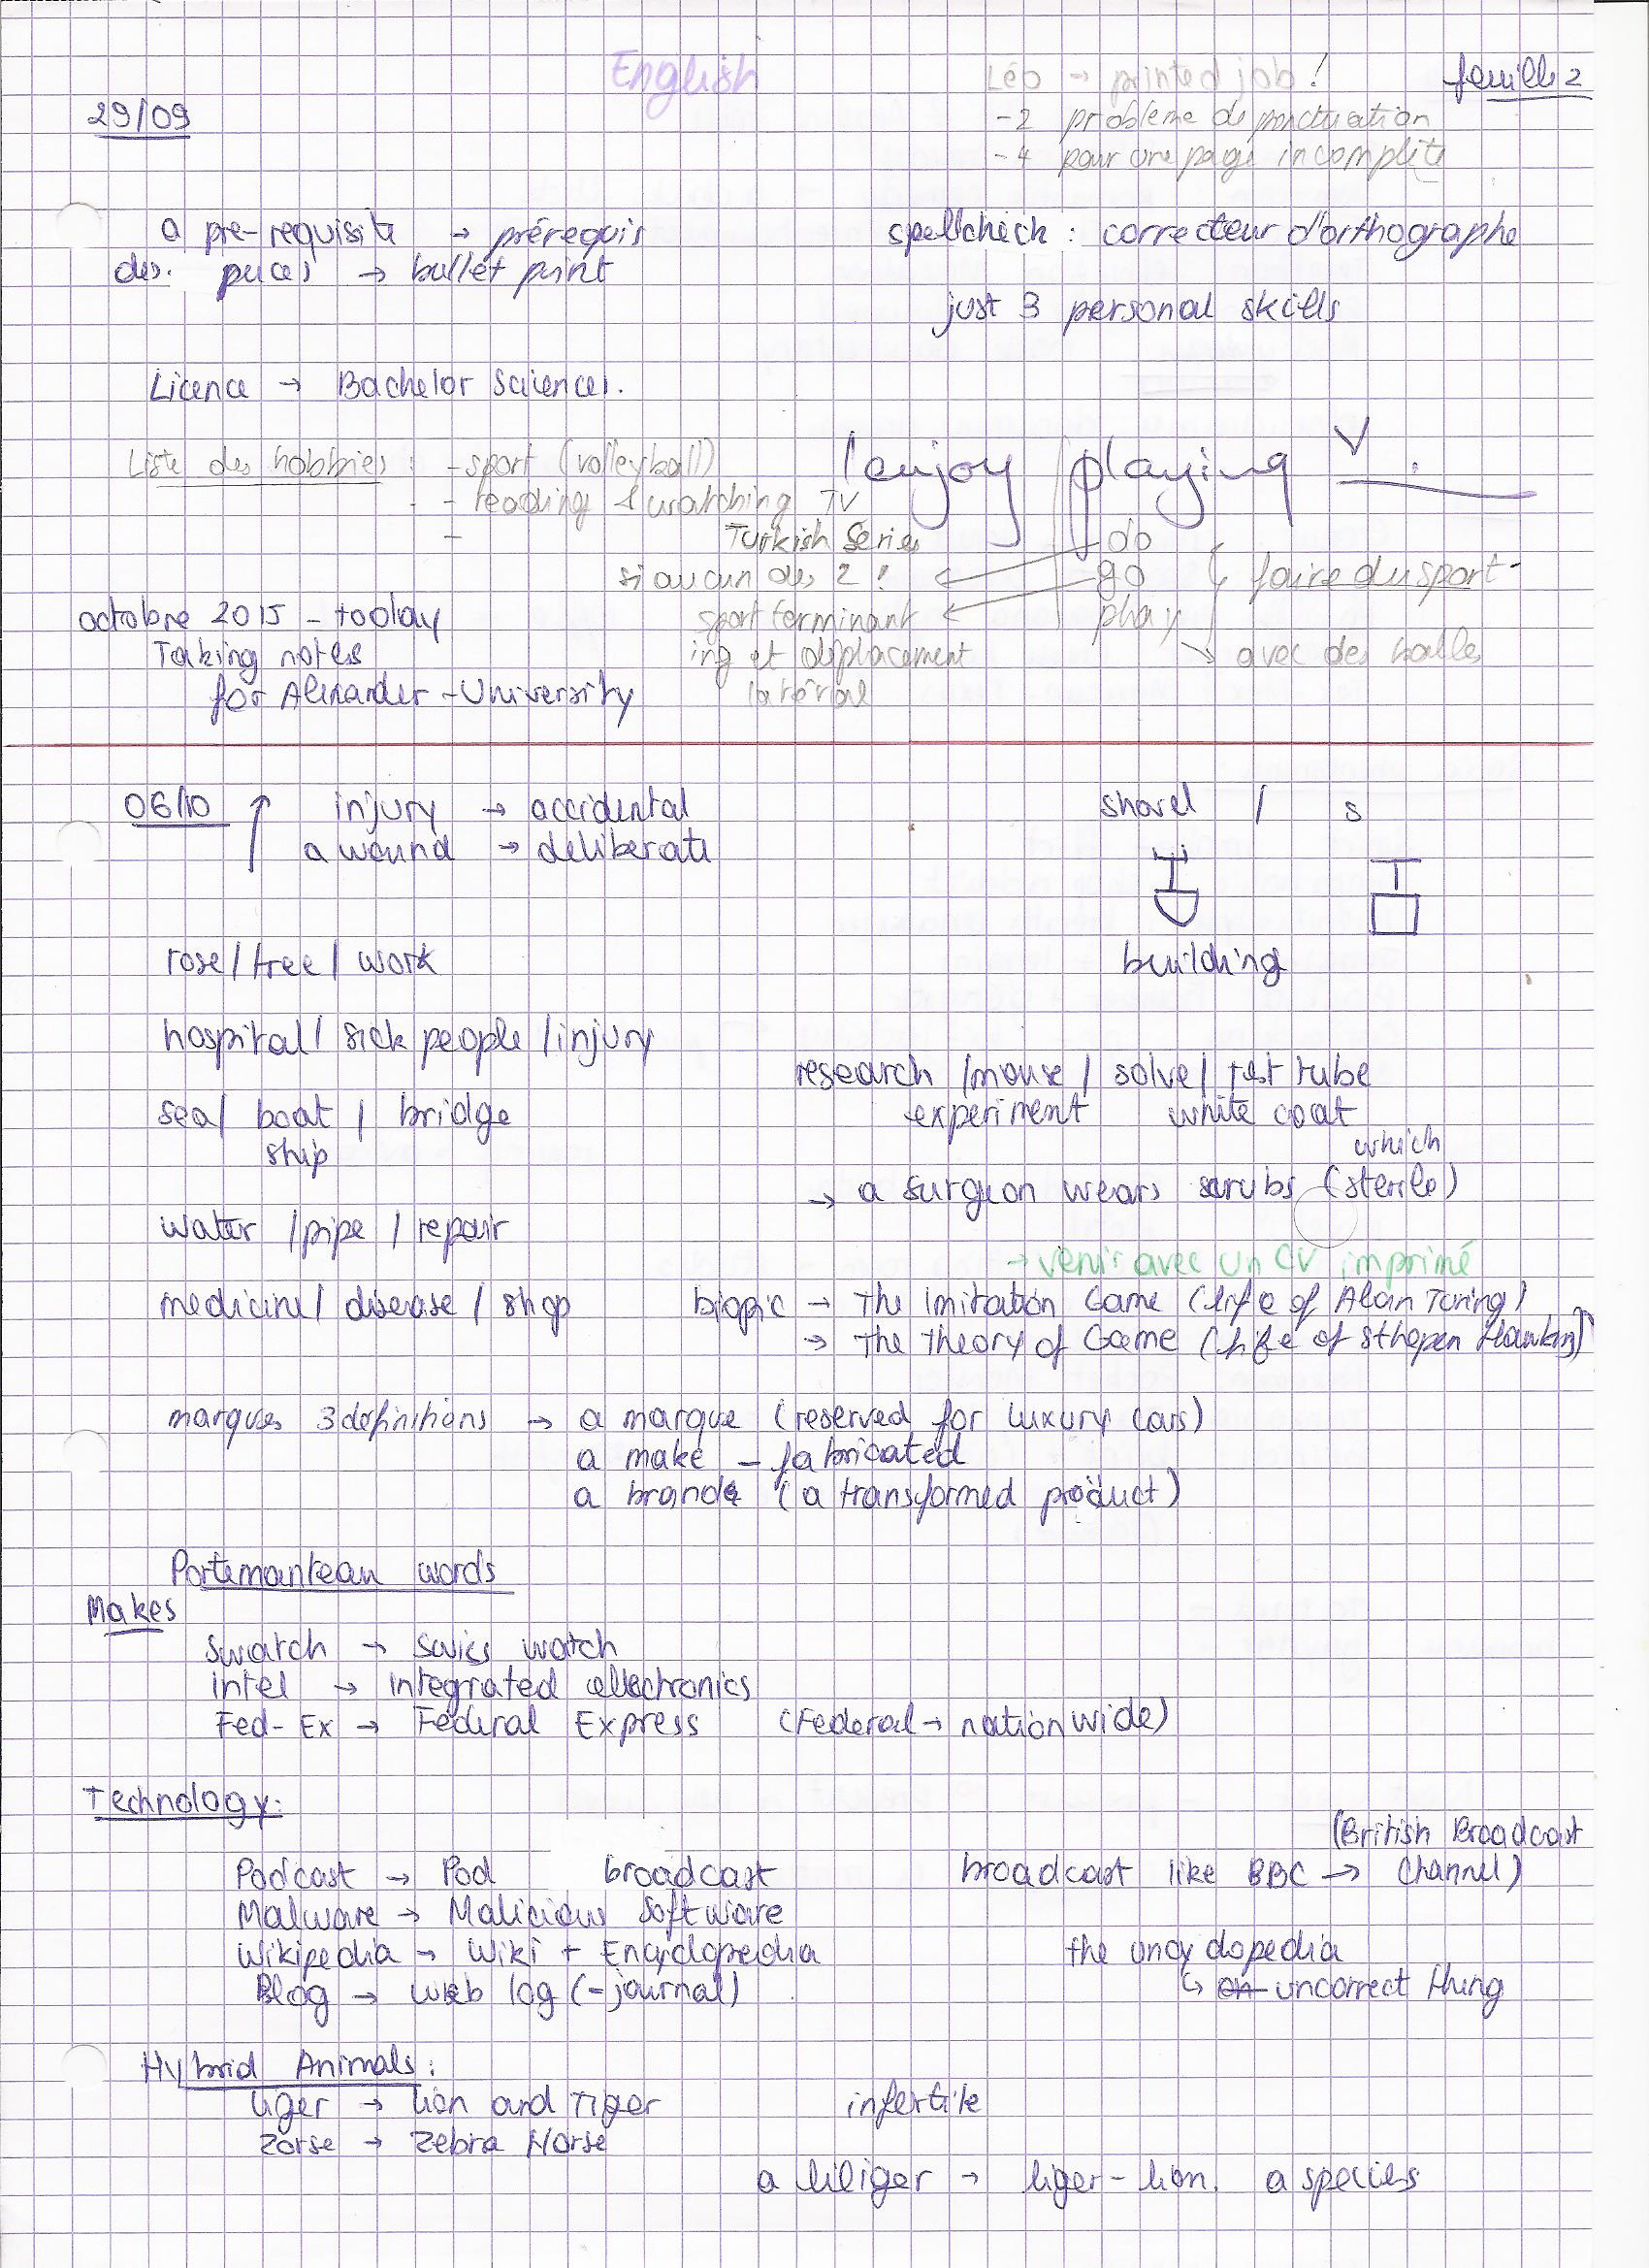 English
Léo → printed job !
feuille 2
29/09
-2 problème de ponctuation
-4 pour une page incomplète
a pre-requisite → prérequis
spellcheck : correcteur d'orthographe
des puces → bullet point
just 3 personal skills
Licence → Bachelor Sciences.
Liste des hobbies : - sport (volleyball)
- reading & watching TV
-
Turkish Series
I enjoy playing V ____ .
do
go
play
faire du sport
si aucun des 2 !
sport terminant
ing et déplacement
latéral
avec des balles
octobre 2015 - today
Taking notes
for Alexander-University
06/10
injury → accidental
a wound → deliberate
shovel / s
building
rose / tree / work
hospital / sick people / injury
research / mouse / solve / test tube
experiment white coat
sea / boat / bridge
ship
which
→ a surgeon wears scrubs (sterile)
water / pipe / repair
→ venir avec un CV imprimé
medicine / disease / shop
biopic → The Imitation Game (life of Alan Turing)
→ The Theory of Game (life of Sthepen Hawking)
marques 3 définitions → a marque (reserved for luxury cars)
a make - fabricated
a brand (a transformed product)
Portemanteau words
Makes
Swatch → Swiss watch
intel → integrated ellectronics
Fed-Ex → Federal Express (Federal → nation wide)
Technology:
(British Broadcast
Podcast → Pod broadcast
broadcast like BBC → Channel)
Malware → Malicious Software
Wikipedia → Wiki + Encyclopedia
the uncyclopedia
Blog → web log (-journal)
↳ uncorrect thing
Hybrid Animals :
liger → lion and Tiger
infertile
zorse → zebra Horse
a liliger → liger-lion. a species